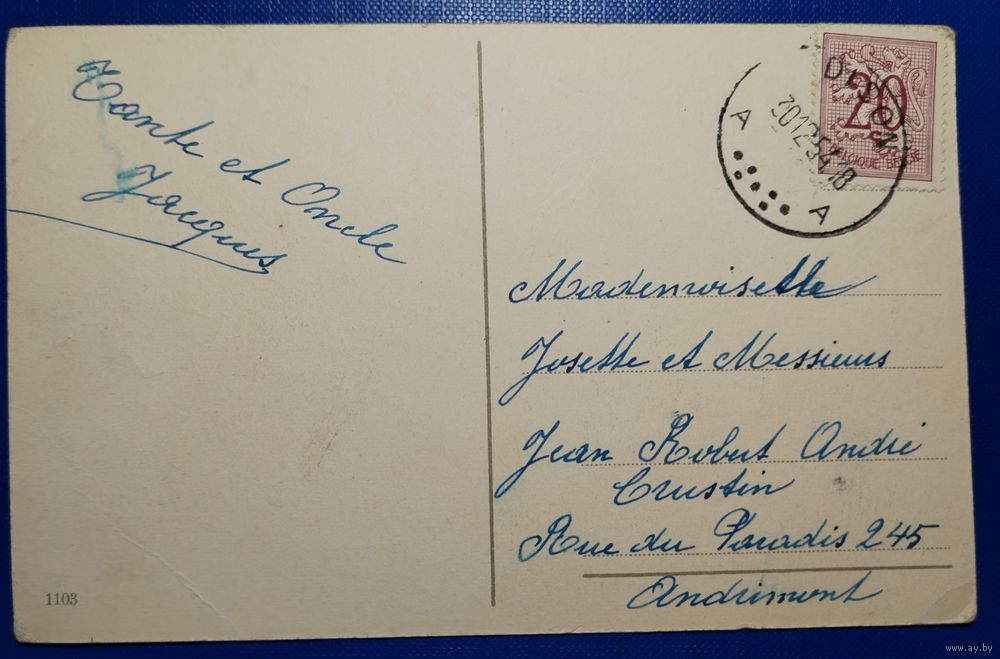 Tante et Oncle
Jacques
DISON
20
BELGIQUE BELGIE
A
A
Mademoiselle
Josette et Messieurs
Jean Robert André
Crustin
Rue du Paradis 245
Andrimont
1103
www.ay.by